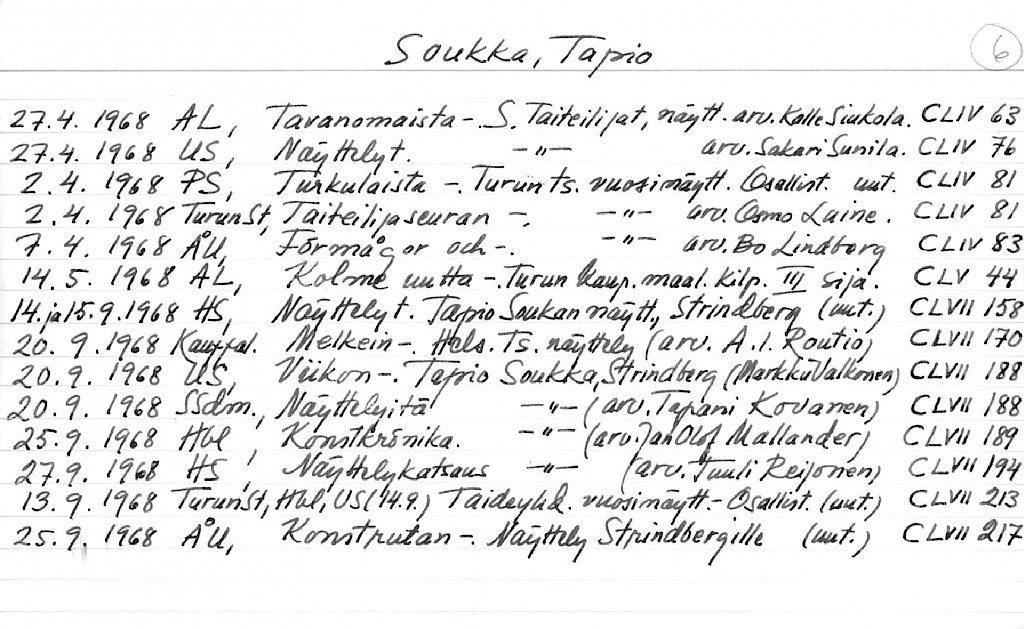 Soukka, Tapio 6
27.4. 1968 AL, Tavanomaista -. S. Taiteilijat, näytt. arv. Kalle Siukola. CLIV 63
27.4. 1968 US, Näyttelyt. -"- arv. Sakari Sunila. CLIV 76
2.4. 1968 PS, Turkulaista -. Turun ts. vuosinäytt. Osallist. uut. CLIV 81
2.4. 1968 TurunSt, Taiteilijaseuran -. -"- arv. Osmo Laine. CLIV 81
7.4. 1968 ÅU, Förmågor och -. -"- arv. Bo Lindborg CLIV 83
14.5. 1968 AL, Kolme uutta - Turun kaup. maal. kilp. III sija. CLV 44
14.ja15.9.1968 HS, Näyttelyt. Tapio Soukan näytt., Strindberg (uut.) CLVII 158
20. 9.1968 Kauppal. Melkein -. Hels. Ts. näyttely (arv. A.I. Routio) CLVII 170
20.9. 1968 US, Viikon -. Tapio Soukka, Strindberg (Markku Valkonen) CLVII 188
20.9. 1968 SSdm., Näyttelyitä -"- (arv. Tapani Kovanen) CLVII 188
25.9. 1968 Hbl, Konstkrönika. -"- (arv. Jan Olof Mallander) CLVII 189
27.9. 1968 HS, Näyttelykatsaus -"- (arv. Tuuli Reijonen) CLVII 194
13.9. 1968 TurunSt, Hbl, US (14.9.) Taideyhd. vuosinäytt. - Osallist. (uut.) CLVII 213
25.9. 1968 ÅU, Konstrutan -. Näyttely Strindbergille (uut.) CLVII 217